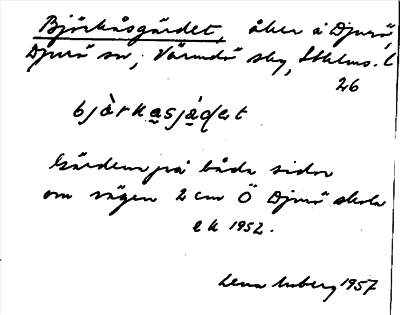 Björkåsgärdet, åker å Djurö,
Djurö sn, Värmdö skg, Sthlms. l
26
bjärkasjädet
Gärden på båda sidor
om vägen 2 cm Ö Djurö skola
ek 1952.
Lena Moberg 1957